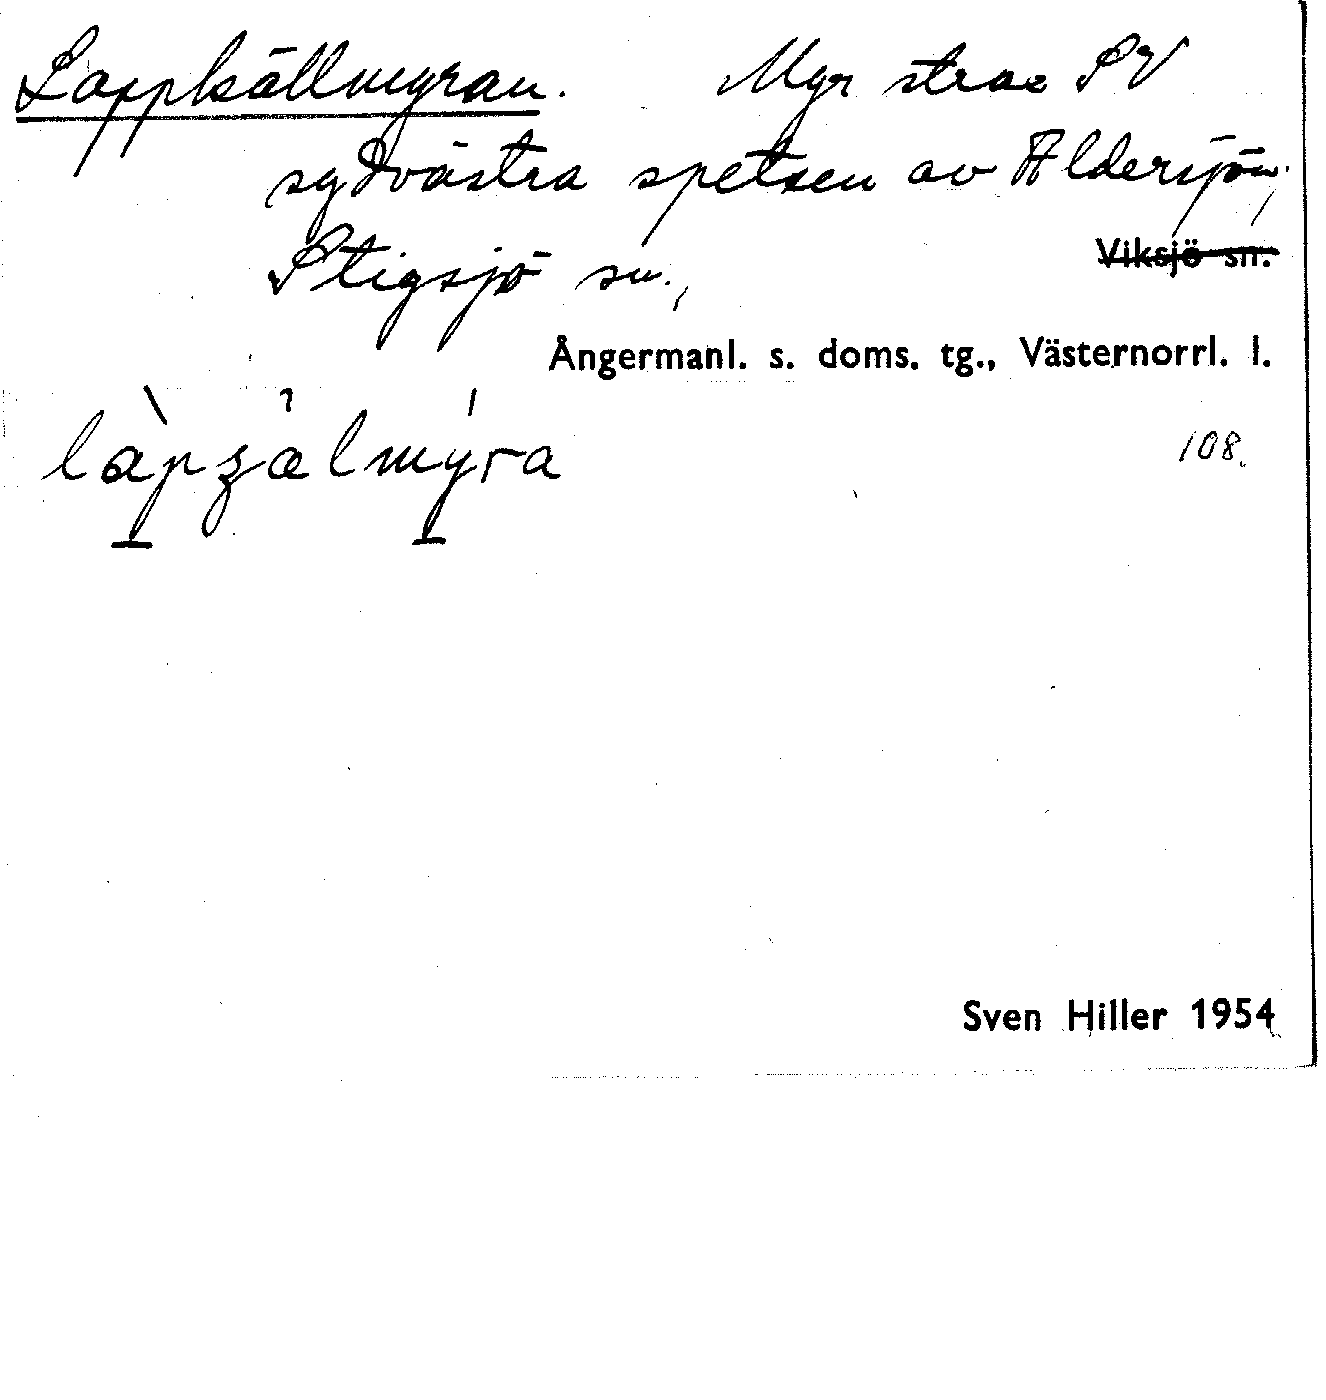 Lappkällmyran. Myr strax SV
sydvästra spetsen av Aldersjön,
Stigsjö sn.,
Viksjö sn.
Ångermanl. s. doms. tg., Västernorrl. l.
108.
Sven Hiller 1954